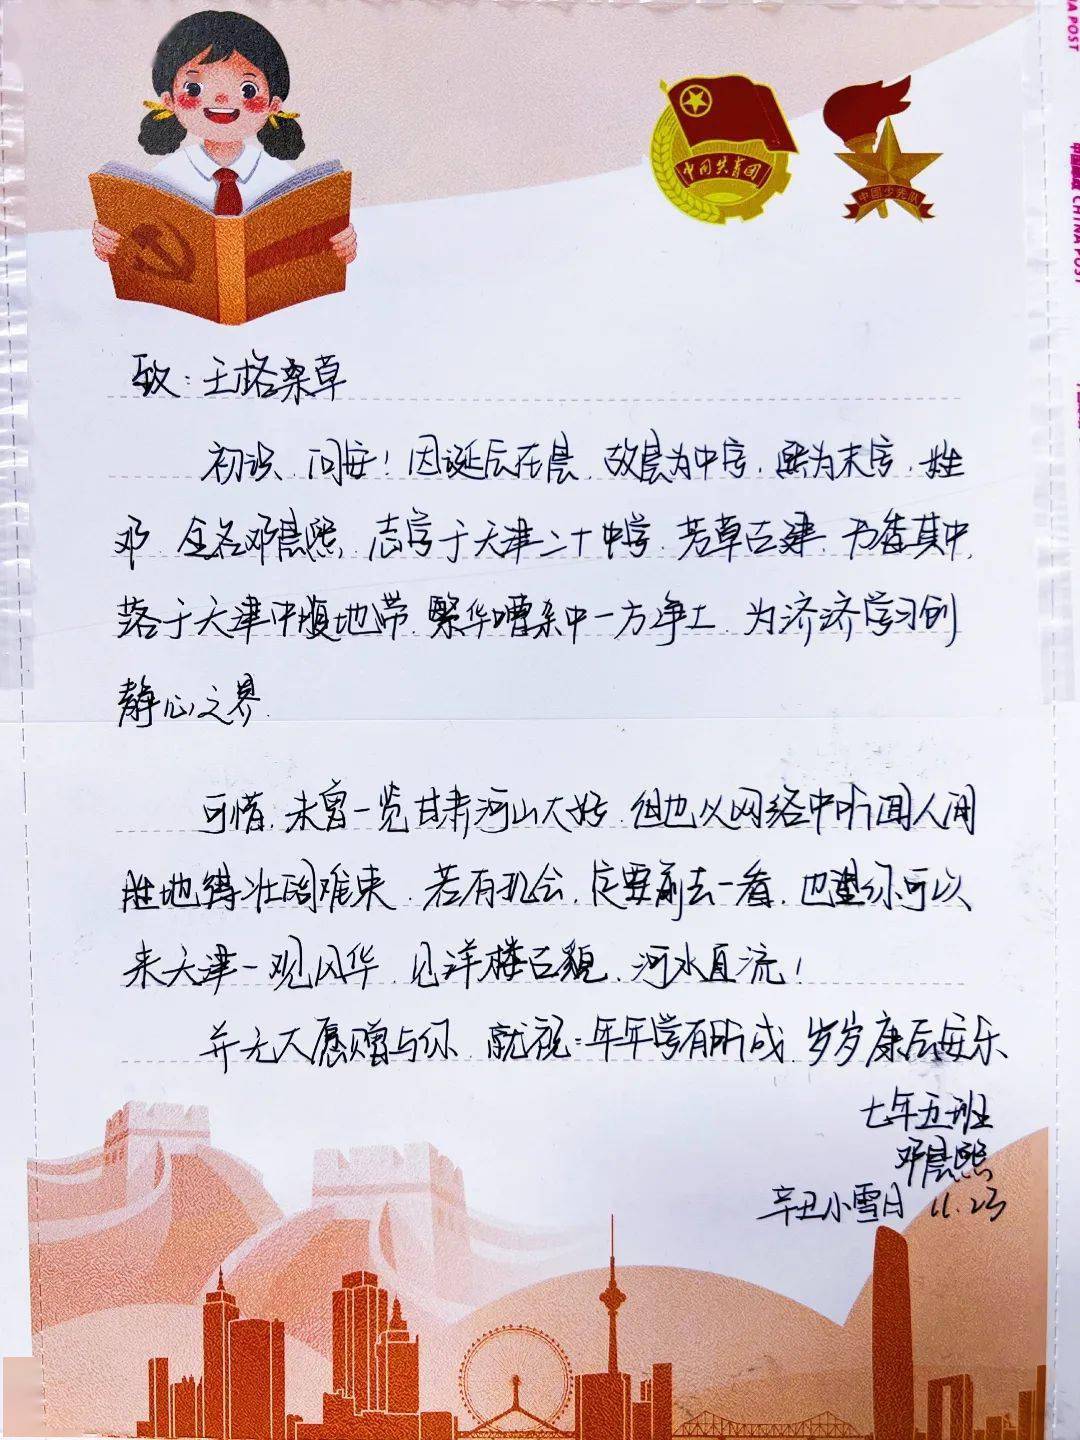 中国共青团
中国少先队
A POST
CHINA POST
致：王格桑草
初识、问安！因诞辰在晨，故晨为中字，熙为末字，姓
邓，全名邓晨熙，志学于天津二十中学，芳草古建，书香其中，
落于天津中腹地带，繁华嘈杂中一方净土，为济济学习创
静心之界.
可惜，未曾一览甘肃河山大好，但也从网络中听闻人间
胜地得壮阔难束，若有机会，定要前去一看，也望你可以
来天津一观风华，见洋楼古貌，河水直流！
并无大愿赠与你，就祝：年年学有所成，岁岁康后安乐
七年五班
邓晨熙
辛丑小雪日 11.23